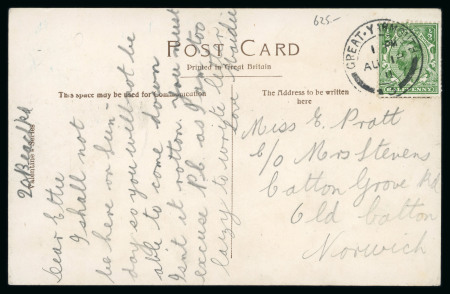 625-
POST CARD
Printed in Great Britain
This space may be used for Communication
The Address to be written
here
GREAT YARMOUTH
1 PM
AU
11
HALFPENNY
20 Beach Rd
Dear Ettie
I shall not
be here on Sun-
day so you will not be
able to come down
Isnt it rotton. you must
excuse P.C. as I am too
lazy to write letter
Love
Miss E. Pratt
C/o Mrs Stevens
Catton Grove Rd
Old Catton
Norwich